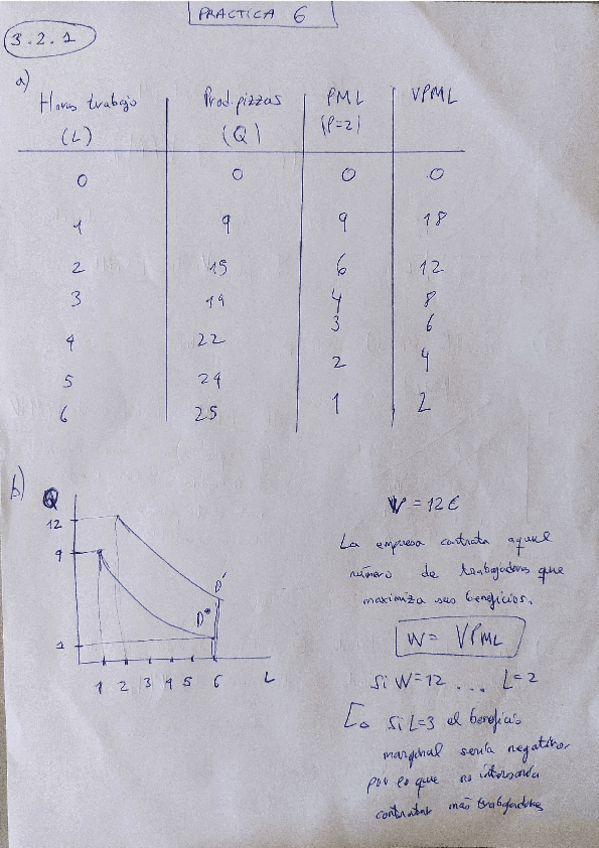 PRACTICA 6
3.2.1
a)
Horas trabajo Prod. pizzas PML VPML
(L) (Q) (P=2)
0 0 0 0
1 9 9 18
2 15 6 12
3 19 4 8
4 22 3 6
5 24 2 4
6 25 1 2
b)
Q
12
9
1
D'
D*
1 2 3 4 5 6 L
W = 12€
La empresa contrata aquel
número de trabajadores que
maximiza sus beneficios.
W = VPML
Si W=12 ... L=2
Si L=3 el beneficio
marginal sería negativo
por lo que no interesaría
contratar más trabajadores